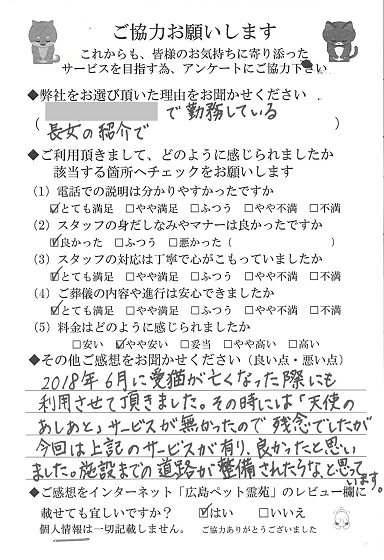 ご協力お願いします
これからも、皆様のお気持ちに寄り添った
サービスを目指す為、アンケートにご協力下さい
◆弊社をお選び頂いた理由をお聞かせください
(で勤務している
長女の紹介で)
◆ご利用頂きまして、どのように感じられましたか
該当する箇所へチェックをお願いします
(1) 電話での説明は分かりやすかったですか
☑とても満足 □やや満足 □ふつう □やや不満 □不満
(2) スタッフの身だしなみやマナーは良かったですか
☑良かった □ふつう □悪かった ( )
(3) スタッフの対応は丁寧で心がこもっていましたか
☑とても満足 □やや満足 □ふつう □やや不満 □不満
(4) ご葬儀の内容や進行は安心できましたか
☑とても満足 □やや満足 □ふつう □やや不満 □不満
(5) 料金はどのように感じられましたか
□安い ☑やや安い □妥当 □やや高い □高い
◆その他ご感想をお聞かせください (良い点・悪い点)
2018年6月に愛猫が亡くなった際にも
利用させて頂きました。その時には「天使の
あしあと」サービスが無かったので残念でしたが
今回は上記のサービスが有り、良かったと思い
ました。施設までの道路が整備されたらなと思って
います。
◆ご感想をインターネット「広島ペット霊苑」のレビュー欄に
載せても宜しいですか? ☑はい □いいえ
個人情報は一切記載しません。 ご協力ありがとうございました